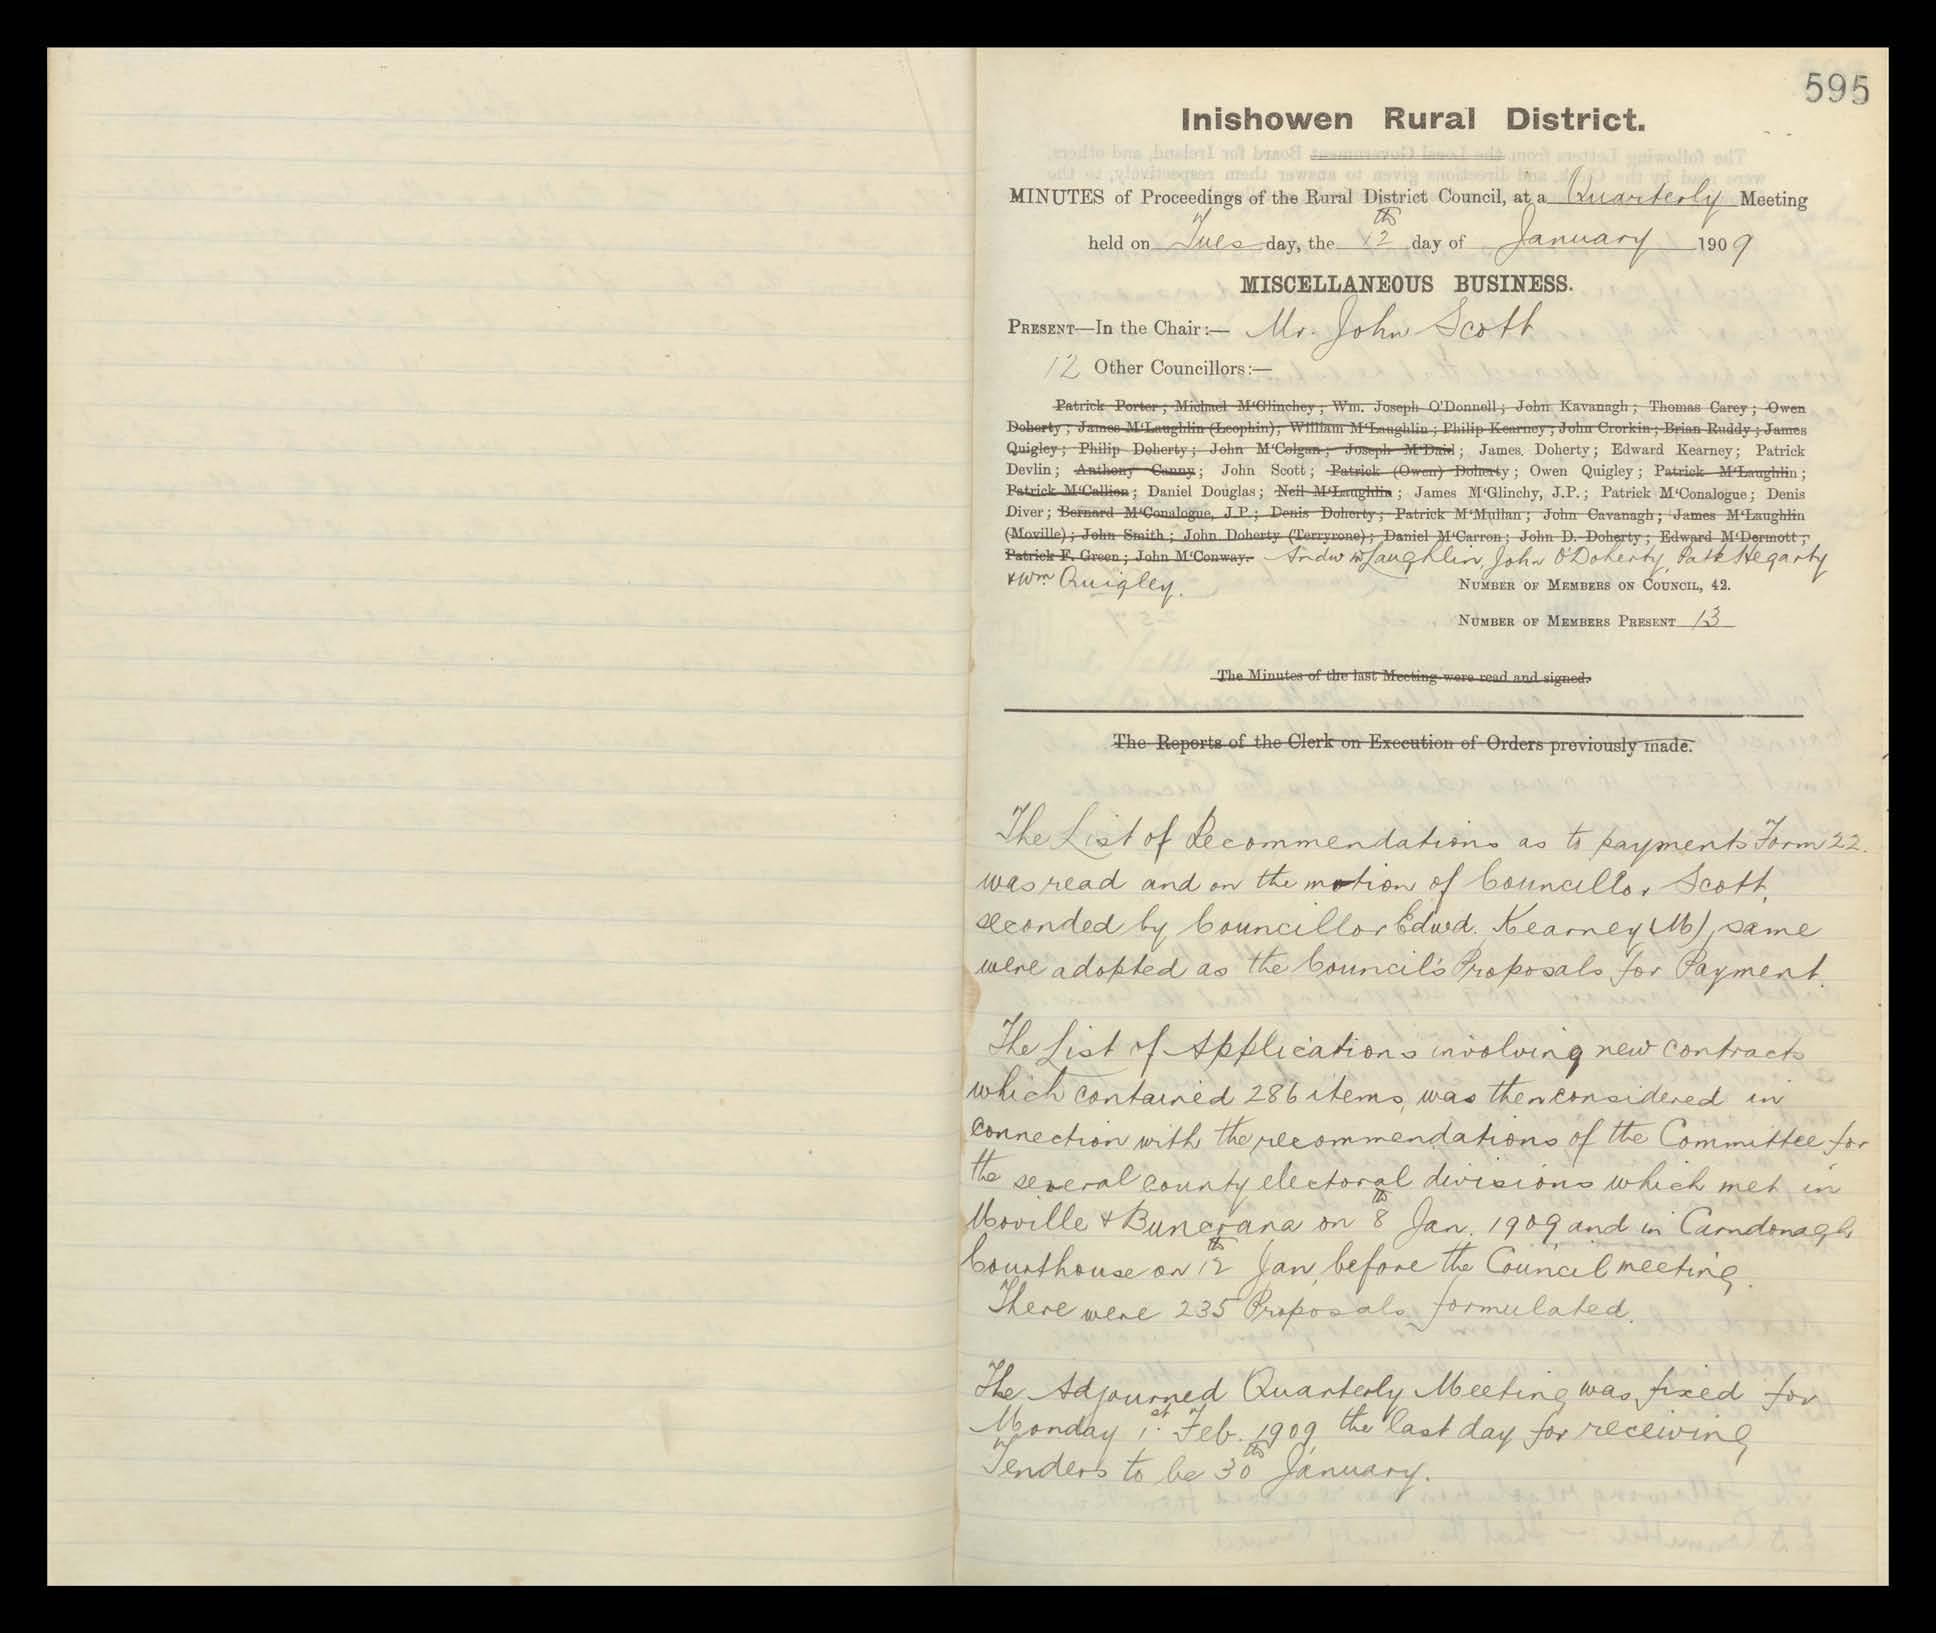 595
Inishowen Rural District.
MINUTES of Proceedings of the Rural District Council, at a Quarterly Meeting
held on Tuesday, the 12th day of January 1909
MISCELLANEOUS BUSINESS.
PRESENT—In the Chair:— Mr. John Scott
12 Other Councillors:—
Patrick Porter; Michael M'Glinchey; Wm. Joseph O'Donnell; John Kavanagh; Thomas Carey; Owen
Doherty; James M'Laughlin (Leophin); William M'Laughlin; Philip Kearney; John Crorkin; Brian Ruddy; James
Quigley; Philip Doherty; John M'Colgan; Joseph M'Daid; James. Doherty; Edward Kearney; Patrick
Devlin; Anthony Canny; John Scott; Patrick (Owen) Doherty; Owen Quigley; Patrick M'Laughlin;
Patrick M'Callion; Daniel Douglas; Neil M'Laughlin; James M'Glinchy, J.P.; Patrick M'Conalogue; Denis
Diver; Bernard M'Conalogue, J.P.; Denis Doherty; Patrick M'Mullan; John Cavanagh; James M'Laughlin
(Moville); John Smith; John Doherty (Terryrone); Daniel M'Carron; John D. Doherty; Edward M'Dermott;
Patrick F. Green; John M'Conway. Andw McLaughlin, John O'Doherty, Patk Hegarty
& Wm. Quigley.
NUMBER OF MEMBERS ON COUNCIL, 42.
NUMBER OF MEMBERS PRESENT 13
The Minutes of the last Meeting were read and signed.
The Reports of the Clerk on Execution of Orders previously made.
The List of Recommendations as to payments Form 22.
was read and on the motion of Councillor Scott,
seconded by Councillor Edwd. Kearney (M), same
were adopted as the Council's Proposals for Payment.
The List of Applications involving new contracts
which contained 286 items, was then considered in
connection with the recommendations of the Committee for
the several county electoral divisions which met in
Moville & Buncrana on 8th Jan. 1909 and in Carndonagh
Courthouse on 12th Jan, before the Council meeting.
There were 235 Proposals formulated.
The Adjourned Quarterly Meeting was fixed for
Monday 1st Feb. 1909, the last day for receiving
Tenders to be 30th January.